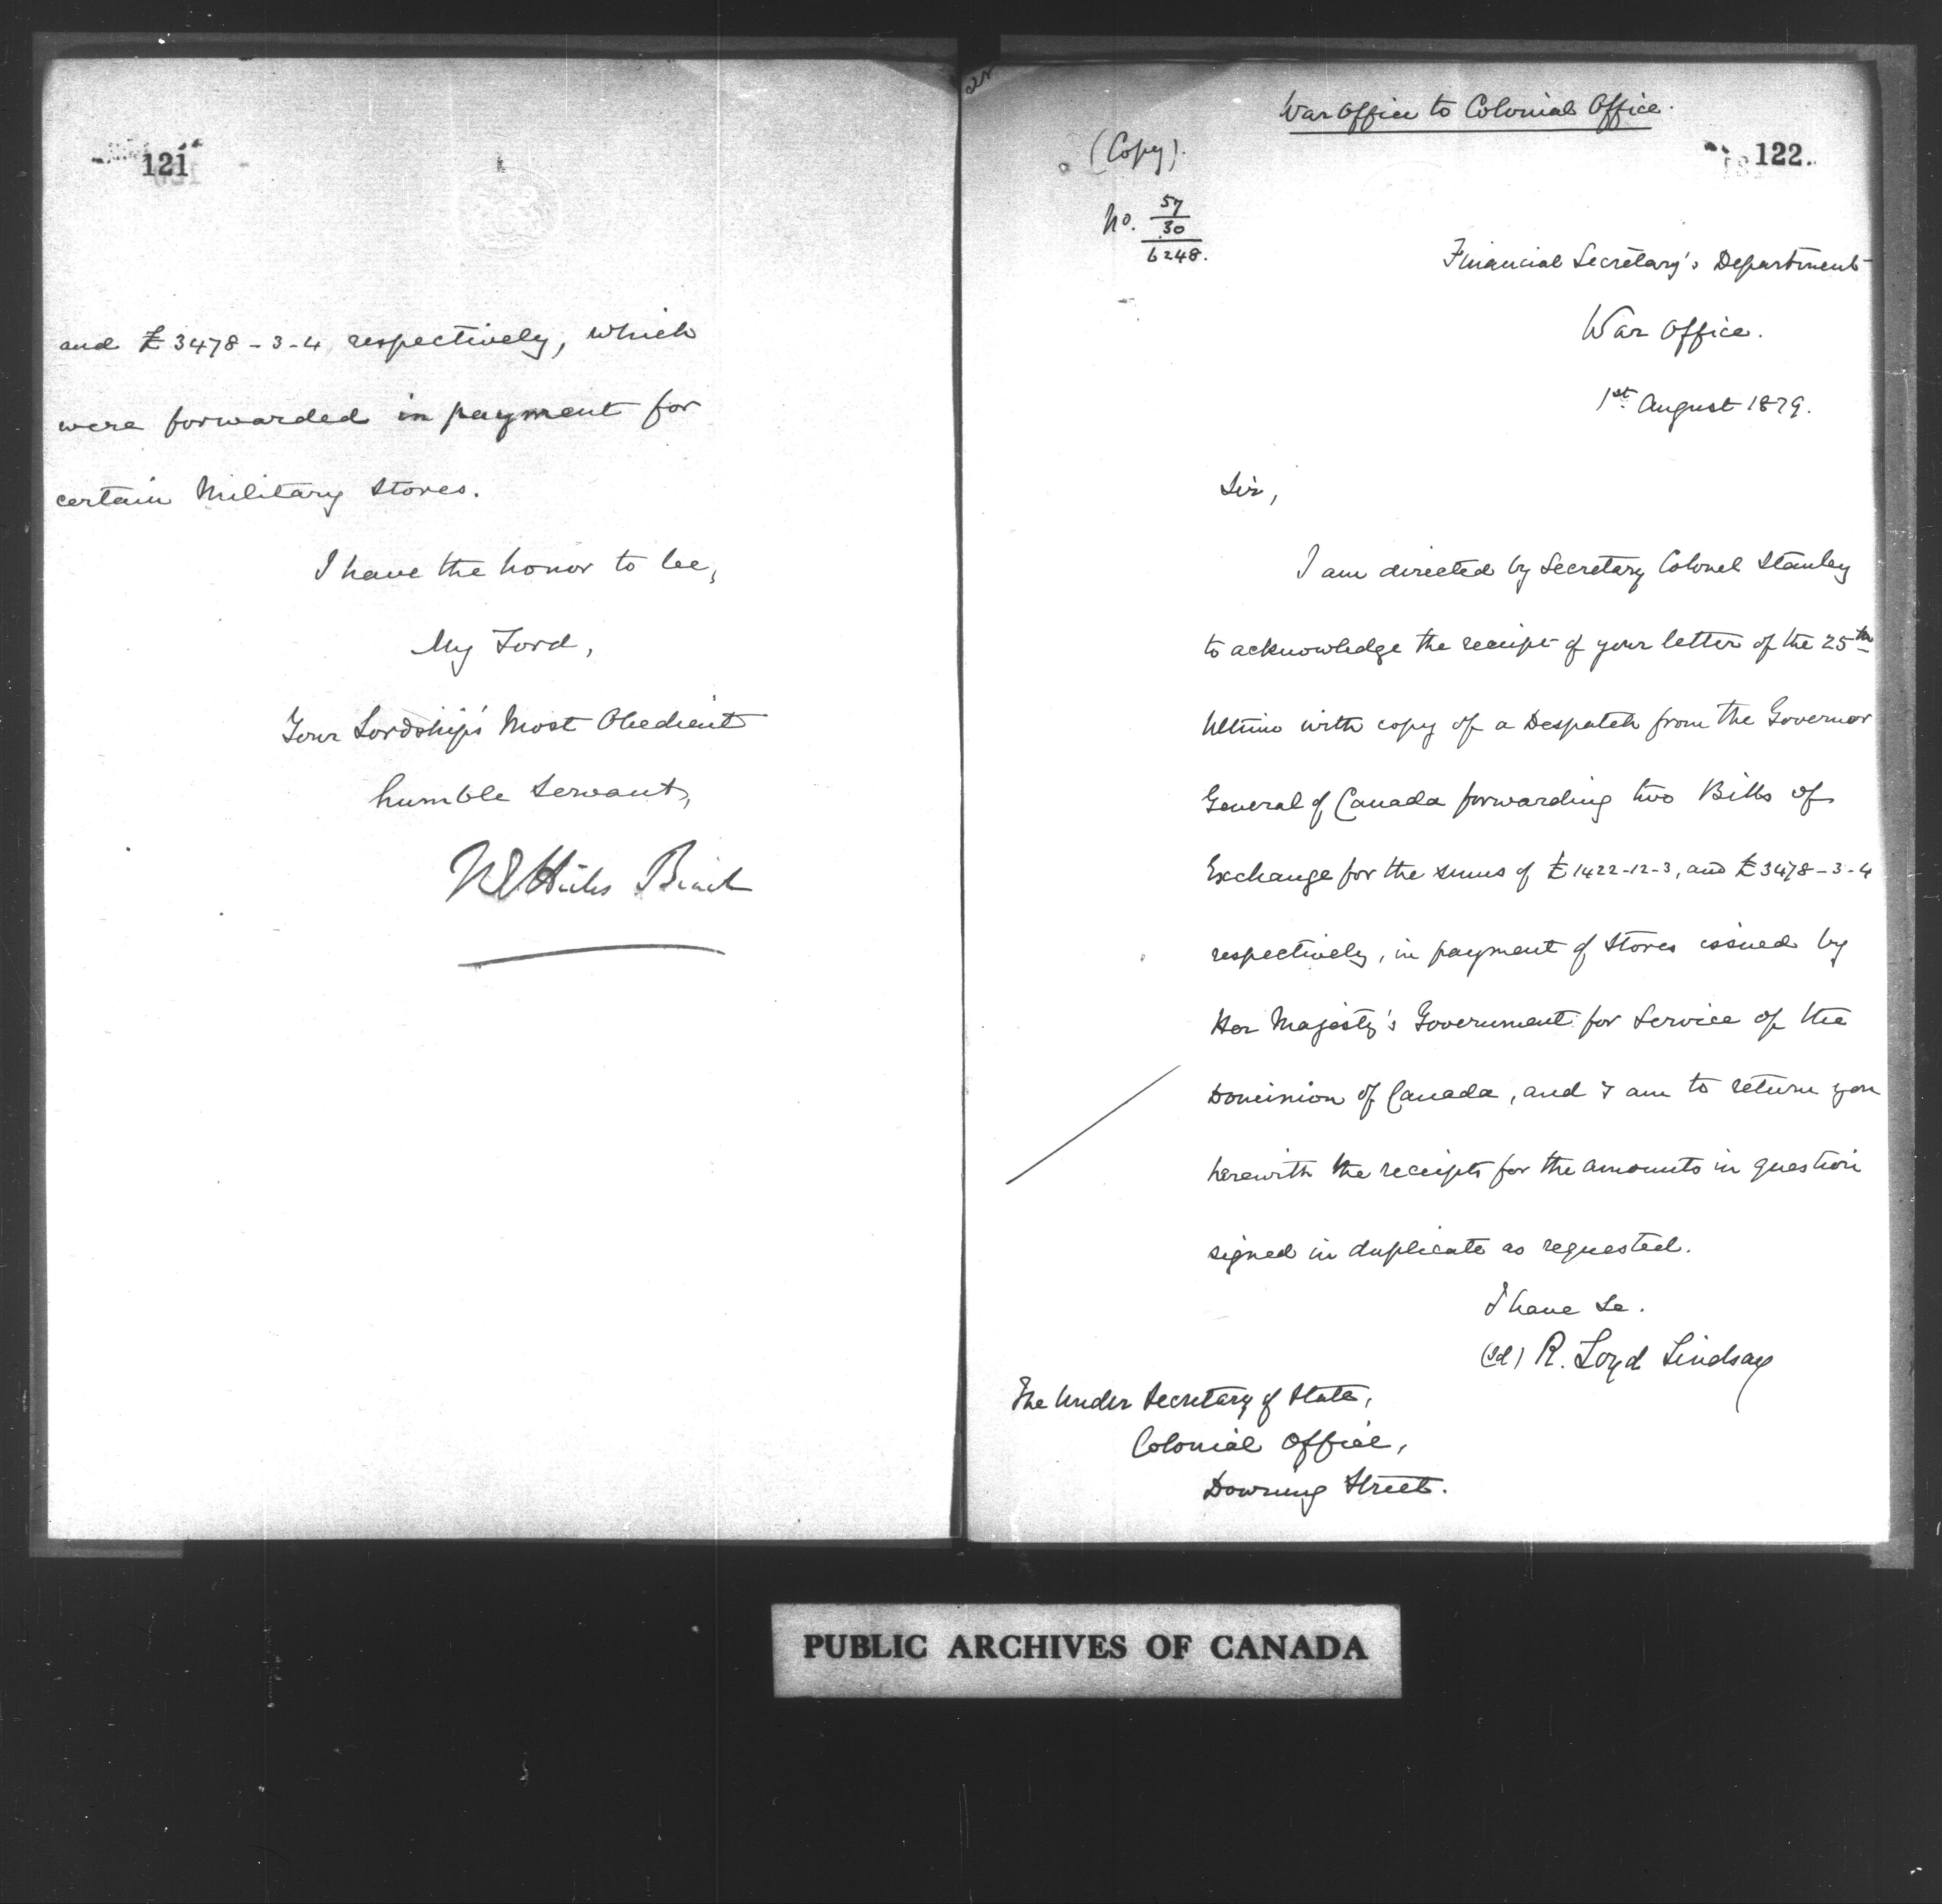 121
and £3478-3-4 respectively, which
were forwarded in payment for
certain Military Stores.
I have the honor to be,
My Lord,
Your Lordship's Most Obedient
humble Servant,
M E Hicks Beach
War Office to Colonial Office.
(Copy).
122.
No. 57
30
6248.
Financial Secretary's Department
War Office.
1st August 1879.
Sir,
I am directed by Secretary Colonel Stanley
to acknowledge the receipt of your letter of the 25th
Ultimo with copy of a Despatch from the Governor
General of Canada forwarding two Bills of
Exchange for the sums of £1422-12-3, and £3478-3-4
respectively, in payment of Stores issued by
Her Majesty's Government for Service of the
Dominion of Canada, and I am to return you
herewith the receipts for the amounts in question
signed in duplicate as requested.
I have &c.
(Sd) R. Loyd Lindsay
The Under Secretary of State,
Colonial Office,
Downing Street.
PUBLIC ARCHIVES OF CANADA